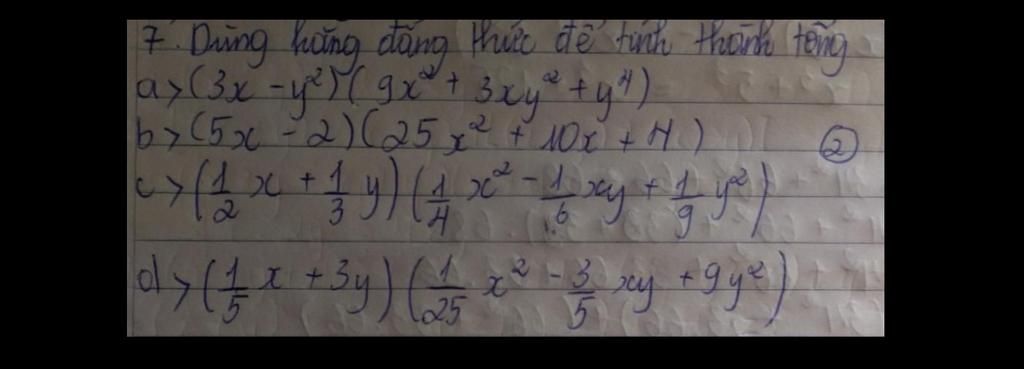 7. Dùng hằng đẳng thức để tính thành tổng
a> (3x - y²)(9x² + 3xy² + y⁴)
b> (5x - 2)(25x² + 10x + 4)
②
c> (1/2 x + 1/3 y)(1/4 x² - 1/6 xy + 1/9 y²)
d> (1/5 x + 3y)(1/25 x² - 3/5 xy + 9y²)